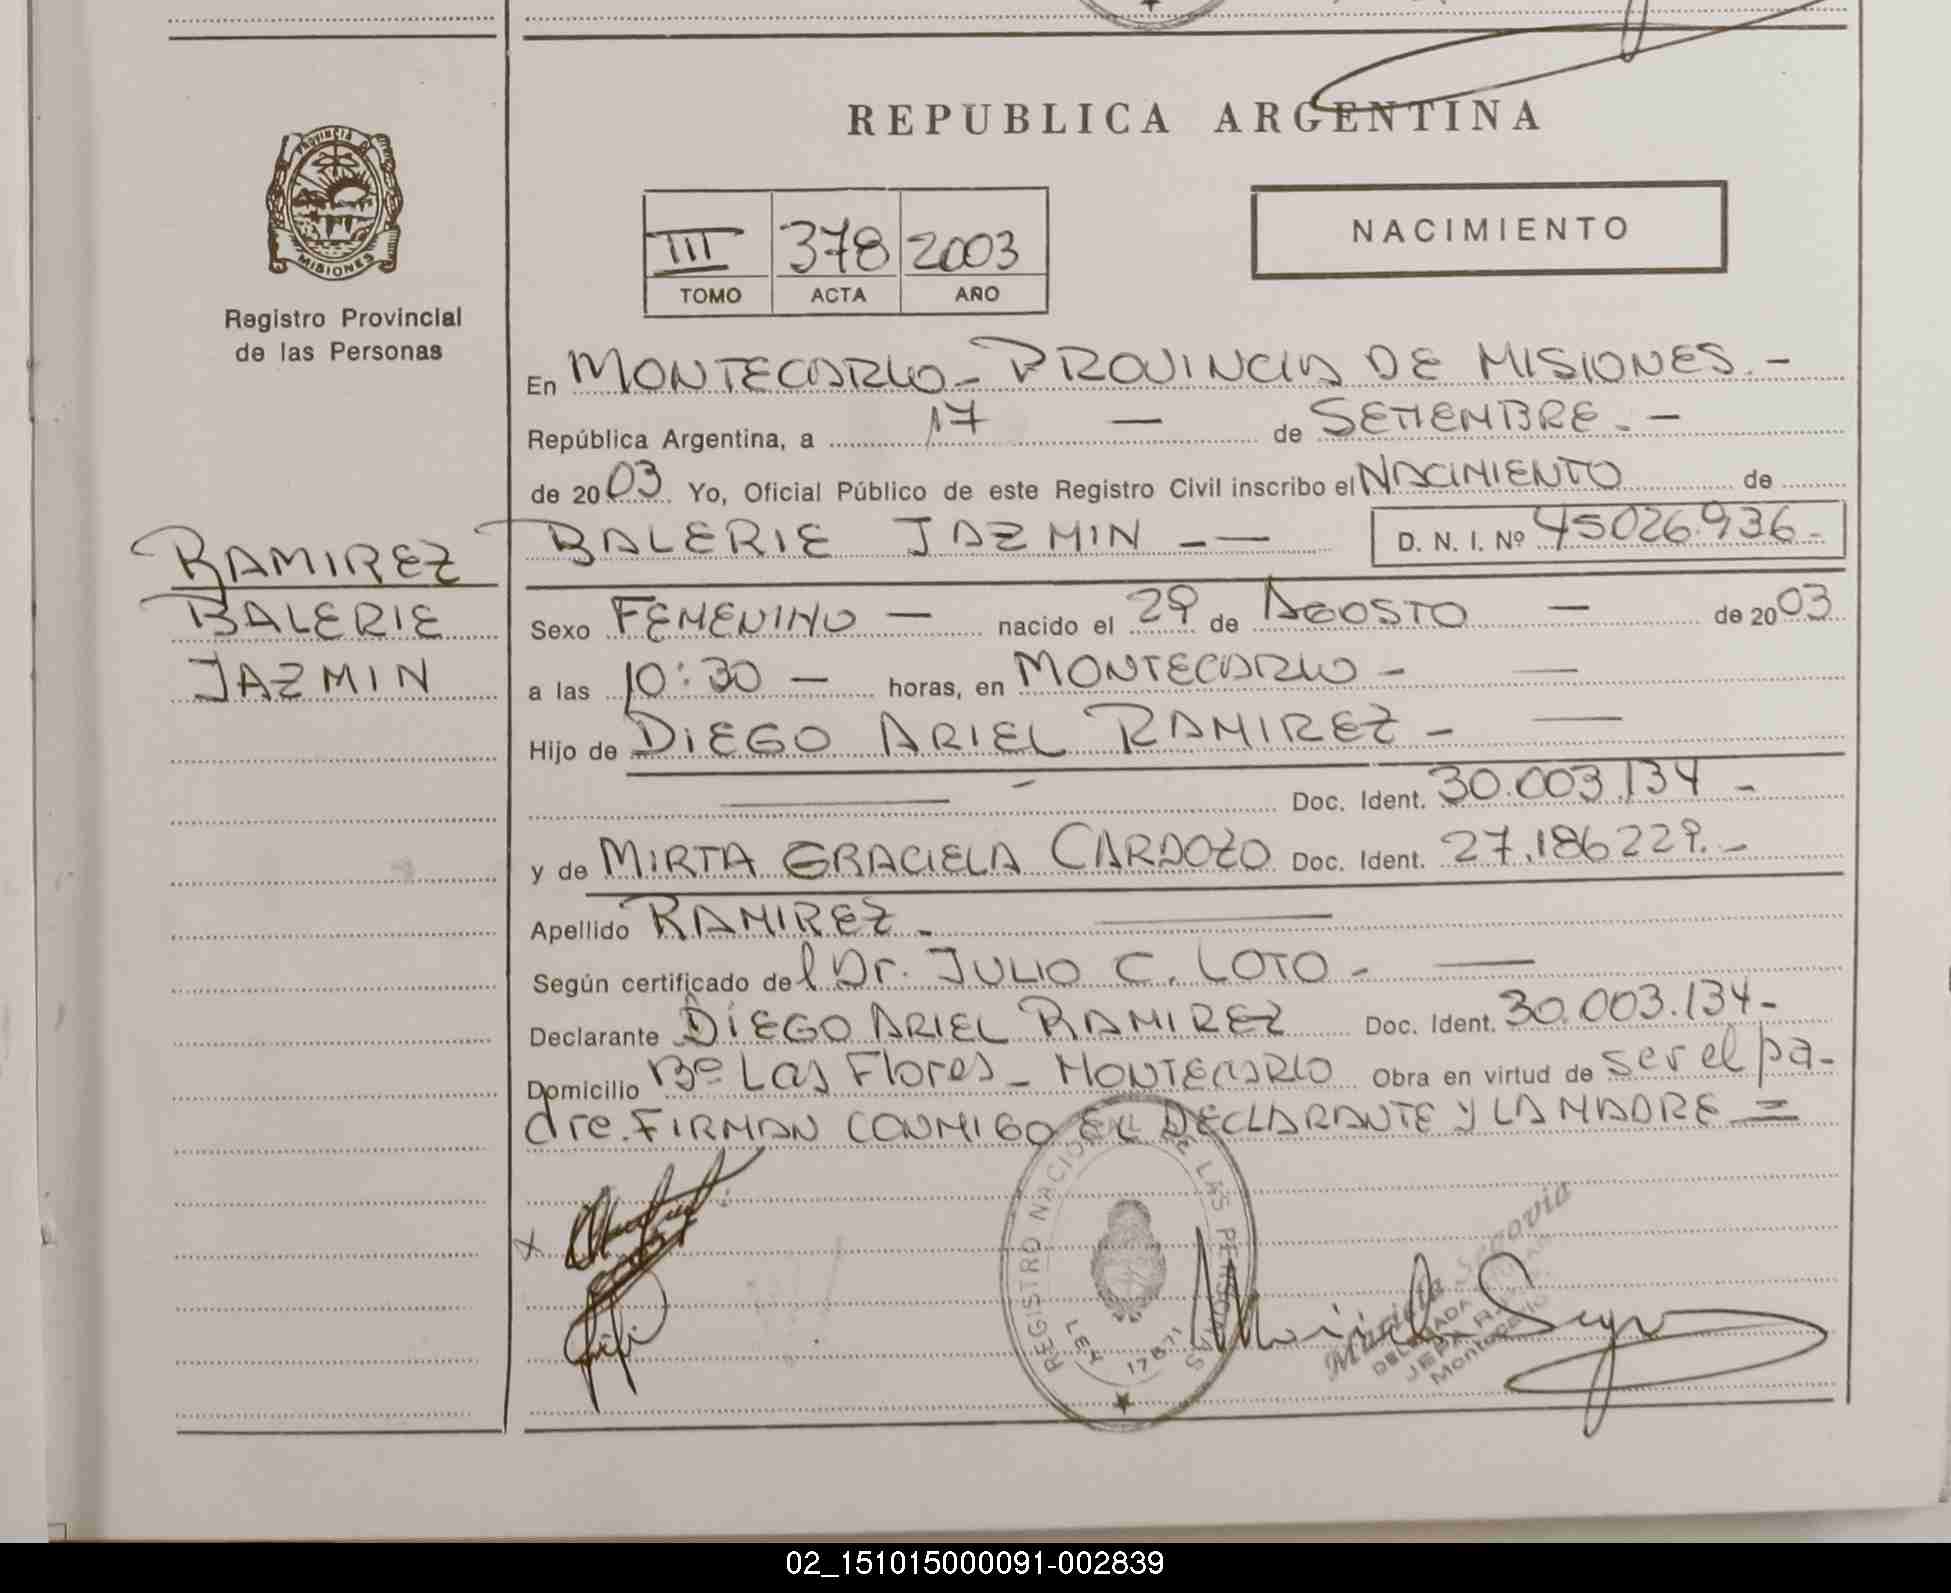 REPUBLICA ARGENTINA
PROVINCIA DE
MISIONES
Registro Provincial
de las Personas
III 378 2003
TOMO ACTA AÑO
NACIMIENTO
En MONTECARLO - PROVINCIA DE MISIONES. -
República Argentina, a 17 — de SETIEMBRE. -
de 2003 Yo, Oficial Público de este Registro Civil inscribo el NACIMIENTO de
BALERIE JAZMIN - — D. N. I. Nº 45026.936 -
RAMIREZ
BALERIE
JAZMIN
Sexo FEMENINO — nacido el 29 de AGOSTO — de 2003
a las 10:30 — horas, en MONTECARLO - —
Hijo de DIEGO ARIEL RAMIREZ - —
— - Doc. Ident. 30.003.134 -
y de MIRTA GRACIELA CARDOZO Doc. Ident. 27.186229. -
Apellido RAMIREZ - —
Según certificado del Dr. JULIO C. LOTO - —
Declarante DIEGO ARIEL RAMIREZ Doc. Ident. 30.003.134 -
Domicilio Bº Las Flores - MONTECARLO Obra en virtud de ser el pa-
dre. FIRMAN CONMIGO EL DECLARANTE Y LA MADRE =
x
REGISTRO NACIONAL DE LAS PERSONAS
LEY 17671
DELEGADA
Montecarlo
02_151015000091-002839